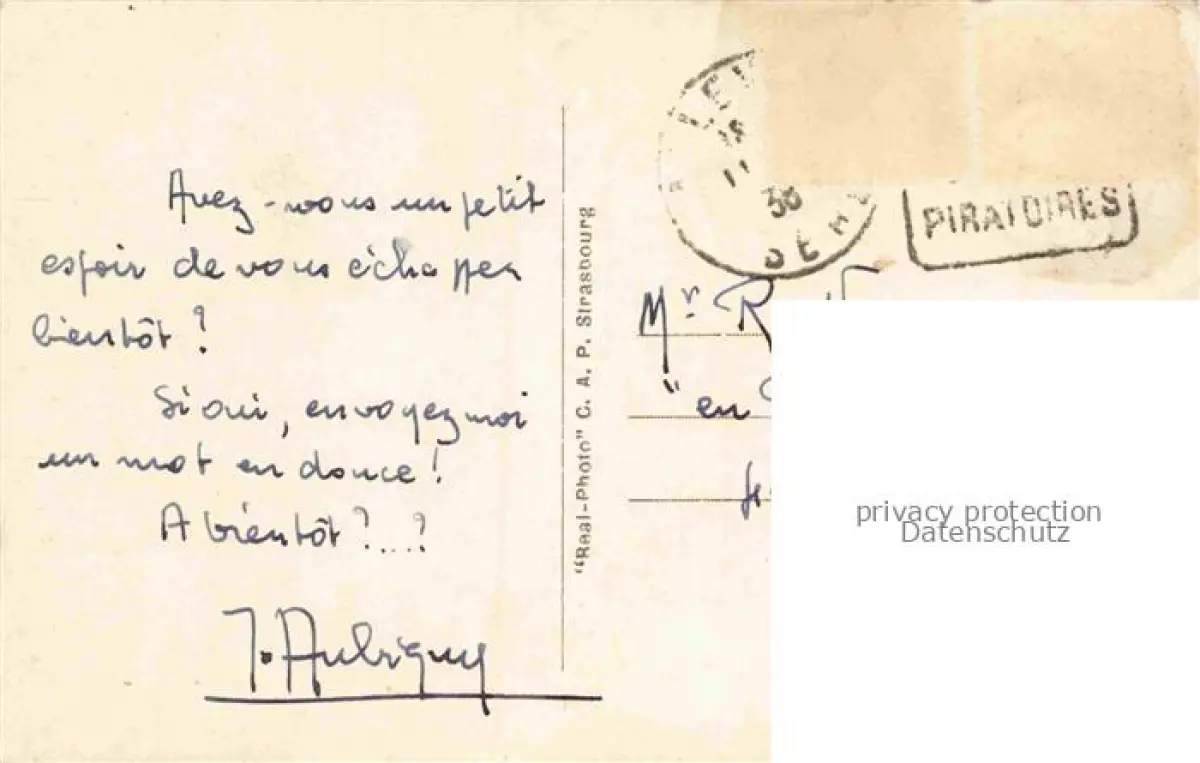 Avez-vous un petit
espoir de vous échapper
bientôt ?
Si oui, envoyez moi
un mot en douce !
A bientôt ?....?
J. Aubigny
"Real-Photo" C. A. P. Strasbourg
38
PIRATOIRES
Mr R
"en
privacy protection
Datenschutz